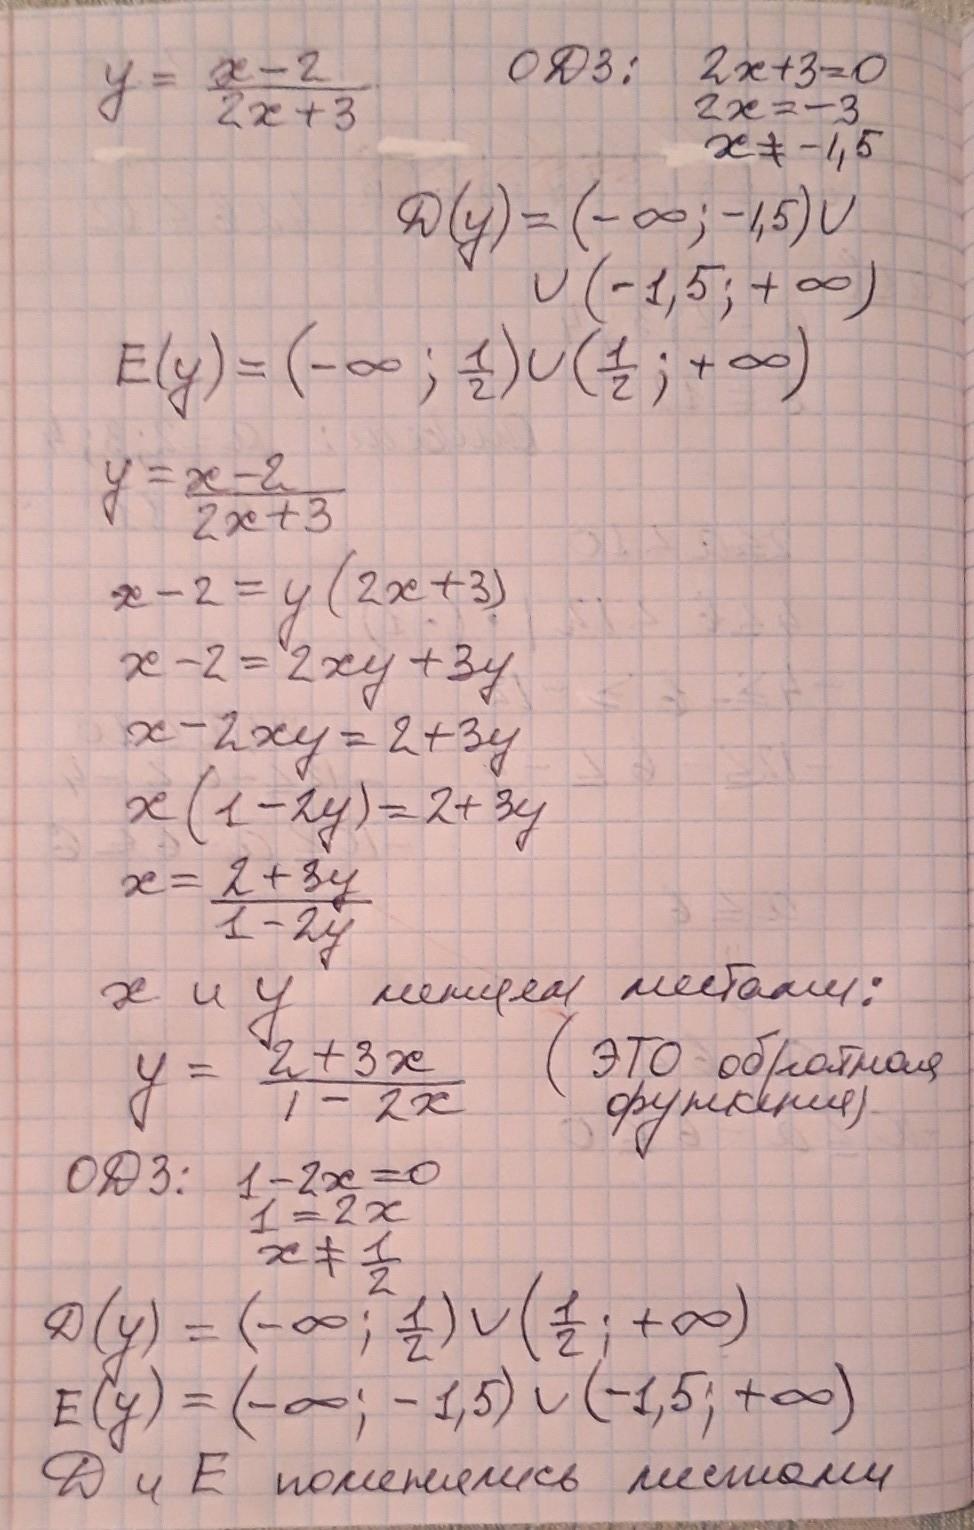 y = x-2 / 2x+3 ОДЗ: 2x+3=0
2x=-3
x≠-1,5
D(y)=(-∞; -1,5)∪
∪(-1,5; +∞)
E(y)=(-∞; 1/2)∪(1/2; +∞)
y = x-2 / 2x+3
x-2=y(2x+3)
x-2=2xy+3y
x-2xy=2+3y
x(1-2y)=2+3y
x= 2+3y / 1-2y
x и y меняем местами:
y = 2+3x / 1-2x (это обратная
функция)
ОДЗ: 1-2x=0
1=2x
x≠1/2
D(y) = (-∞; 1/2)∪(1/2; +∞)
E(y) = (-∞; -1,5)∪(-1,5; +∞)
D и E поменялись местами